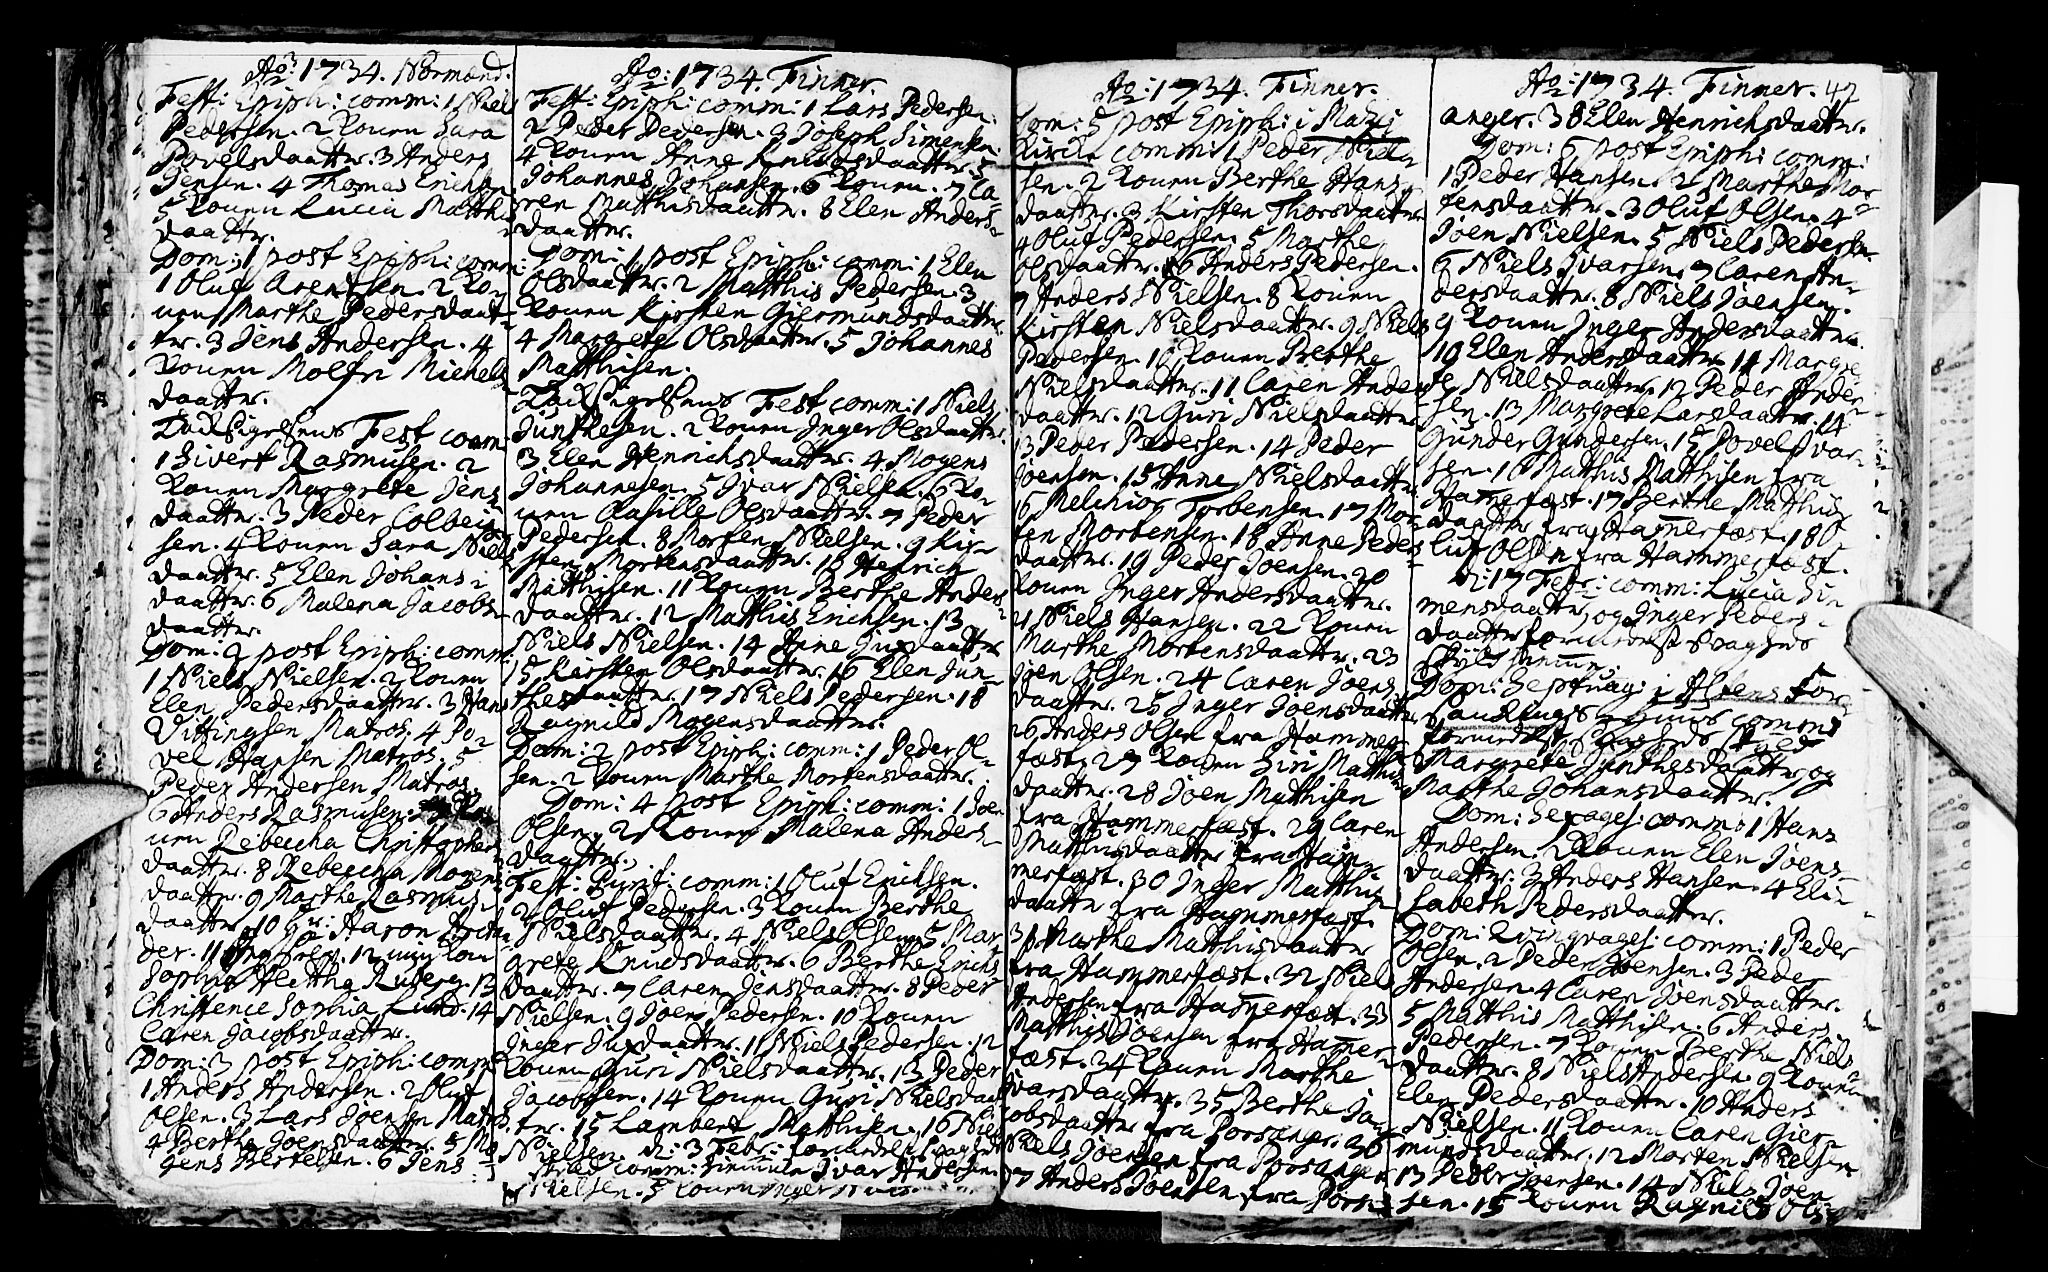 Ao: 1734. Normænd.
Fest: Epiph: comm: 1 Niels
Pedersen. 2 Konen Sara
Povelsdaatter. 3 Anders
Jensen. 4 Thomas Erichsen
5 Konen Lucia Matthis
daatter.
Dom: 1 post Epiph: comm:
1 Oluf Arentsen. 2 Ko-
nen Marthe Pedersdaat-
ter. 3 Jens Andersen. 4
Konen Molfri Michels
daatter.
Fest comm
1 Sivert Rasmusen. 2
Konen Margrete Jens
daatter. 3 Peder Colbein
sen. 4 Konen Sara Niels
daatter. 5 Elen Johans
daatter. 6 Malena Jacobs
daatter.
Dom: 2 post Epiph: comm:
1 Niels Nielsen. 2 Konen
Elen Pedersdaatter. 3 Hans
Vittingsen Matros. 4 Po-
vel Hansen Matros. 5
Peder Andersen Matros
6 Anders Rasmusen. 7 Ko
nen Rebeccha Christophers
daatter. 8 Rebeccha Mogens
daatter. 9 Marthe Rasmus
daatter. 10 Hr: Aaron
der. 11 12 min Kone
Sophia Hertha Ruberg. 13
Christence Sophia Lund. 14
Caren Jacobsdaatter.
Dom: 3 post Epiph: comm
1 Anders Andersen. 2 Oluf
Olsen. 3 Lars Joensen Matros.
4 Berthe Joensdaatter. 5 Mo
gens Bertelsen. 6 Jens
Ao: 1734. Finner.
Fest: Epiph: comm: 1 Lars Pedersen.
2 Peder Pedersen. 3 Joseph Simensen.
4 Konen Anne Knudsdaatter. 5
Johannes Johansen. 6 Konen. 7 Ca-
ren Matthisdaatter. 8 Elen Anders-
daatter.
Dom: 1 post Epiph: comm: 1 Elen
Olsdaatter. 2 Matthis Pedersen. 3
Konen Kirsten Giermundsdaatter.
4 Margrete Olsdaatter. 5 Johannes
Matthisen.
Fest comm: 1 Niels
Junthesen. 2 Konen Inger Olsdaatter.
3 Elen Henrichsdaatter. 4 Mogens
Johannesen. 5 Ivar Nielsen. 6 Ko-
nen Olsdaatter. 7 Peder
Pedersen. 8 Morten Nielsen. 9 Kir-
sten Mortensdaatter. 10 Henrich
Matthisen. 11 Konen Berthe Anders
daatter. 12 Matthies Erichsen. 13
Niels Nielsen. 14 Anne
15 Kirsten Olsdaatter. 16 Elen Jun-
thesdaatter. 17 Niels Pedersen. 18
Ragnild Mogensdaatter.
Dom: 2 post Epiph: comm: 1 Peder Ol-
sen. 2 Konen Marthe Mortensdaatter.
Dom: 4 post Epiph: comm: 1 Joen
Olsen. 2 Konen Malena Anders-
daatter.
Fest: Purif: comm: 1 Oluf Ericksen.
2 Oluf Pedersen. 3 Konen Berthe
Nielsdaatter. 4 Niels Olsen. 5 Mar
grete Knudsdaatter. 6 Berthe Erichs
daatter. 7 Caren Jensdaatter. 8 Peder
Nielsen. 9 Joen Pedersen. 10 Konen
Inger 11 Niels Pedersen. 12
Konen Guri Nielsdaatter. 13 Peder
Jacobsen. 14 Konen Guri Nielsdaat
ter. 15 Lambert Matthisen. 16 Niels
Nielsen. d: 3 Febr:
comm: Ivar Andersen
Nielsen. 3 Konen Inger
Ao: 1734. Finner.
Dom: 5 post Epiph: i Mazi
Kircke comm: 1 Peder Niel-
sen. 2 Konen Berthe Hans
daatter. 3 Kirsten Thorsdaatter
4 Oluf Pedersen. 5 Marthe
Olsdaatter. 6 Anders Pedersen.
7 Anders Nielsen. 8 Konen
Kirsten Nielsdaatter. 9 Niels
Pedersen. 10 Konen Berthe
Nielsdaatter. 11 Caren Anders
daatter. 12 Guri Nielsdaatter
13 Peder Pedersen. 14 Peder
Joensen. 15 Anne Nielsdaatter
16 Melchior Torbensen. 17 Mor-
ten Mortensen. 18 Anne Peders
daatter. 19 Peder Joensen. 20
Konen Inger Andersdaatter.
21 Niels Hansen. 22 Konen
Marthe Mortensdaatter. 23
Joen Olsen. 24 Caren Joens
daatter. 25 Inger Joensdaatter
26 Anders Olsen fra Hammer-
fæst. 27 Konen Siri Matthis
daatter. 28 Joen Mathisen
fra Hammerfæst. 29 Caren
Matthisdaatter fra Ham-
merfæst. 30 Inger Matthis
daatter fra Hammerfæst.
31 Marthe Matthisdaatter
fra Hammerfæst. 32 Niels
Andersen fra Hamerfæst. 33
Matthis Joensen fra Hamer-
fæst. 34 Konen Marthe
Ivarsdaatter. 35 Berthe Ja-
cobsdaatter fra Porsanger. 36
Niels Joensen fra Porsanger
37 Anders Joensen fra Pors-
Ao: 1734. Finner. 42
anger. 38 Elen Henrichsdaatter.
Dom: 6 post Epiph: comm:
1 Peder Hansen. 2 Marthe Mor
tensdaatter. 3 Oluf Olsen. 4
Joen Nielsen. 5 Niels Pedersen.
6 Niels Ivarsen. 7 Caren An-
dersdaatter. 8 Niels Joensen.
9 Konen Inger Andersdaatter.
10 Elen Andersdaatter. 11 Margre
te Nielsdaatter. 12 Peder Ander-
sen. 13 Margrete Larsdaatter. 14
Gunder Gundersen. 15 Povel Ivar-
sen. 16 Matthis Matthisen fra
Hamerfæst. 17 Berthe Matthis
daatter fra Hamerfæst. 18 O-
luf Olsen fra Hammerfæst.
d: 17 Febr: comm: Lucia Si-
mensdaatter og Inger Peders-
daatter formedelst Svagheds
Skyld hiemme.
Dom: Septuag: i Altens For-
comm:
formedelst Svagheds Skyld
Margrete Junthesdaatter og
Marthe Johansdaatter.
Dom: Sexages: comm: 1 Hans
Andersen. 2 Konen Elen Joens-
daatter. 3 Anders Hansen. 4 Eli-
sabeth Pedersdaatter.
Dom: Qvinqvages: comm: 1 Peder
Olsen. 2 Peder Joensen. 3 Peder
Andersen. 4 Caren Joensdaatter.
5 Matthis Matthisen. 6 Anders
Pedersen. 7 Konen Berthe Niels
daatter. 8 Niels Andersen. 9 Konen
Elen Pedersdaatter. 10 Anders
Nielsen. 11 Konen Caren Gier-
mundsdaatter. 12 Morten Nielsen
13 Peder Joensen. 14 Niels Joen
sen. 15 Konen Ragnild Ols